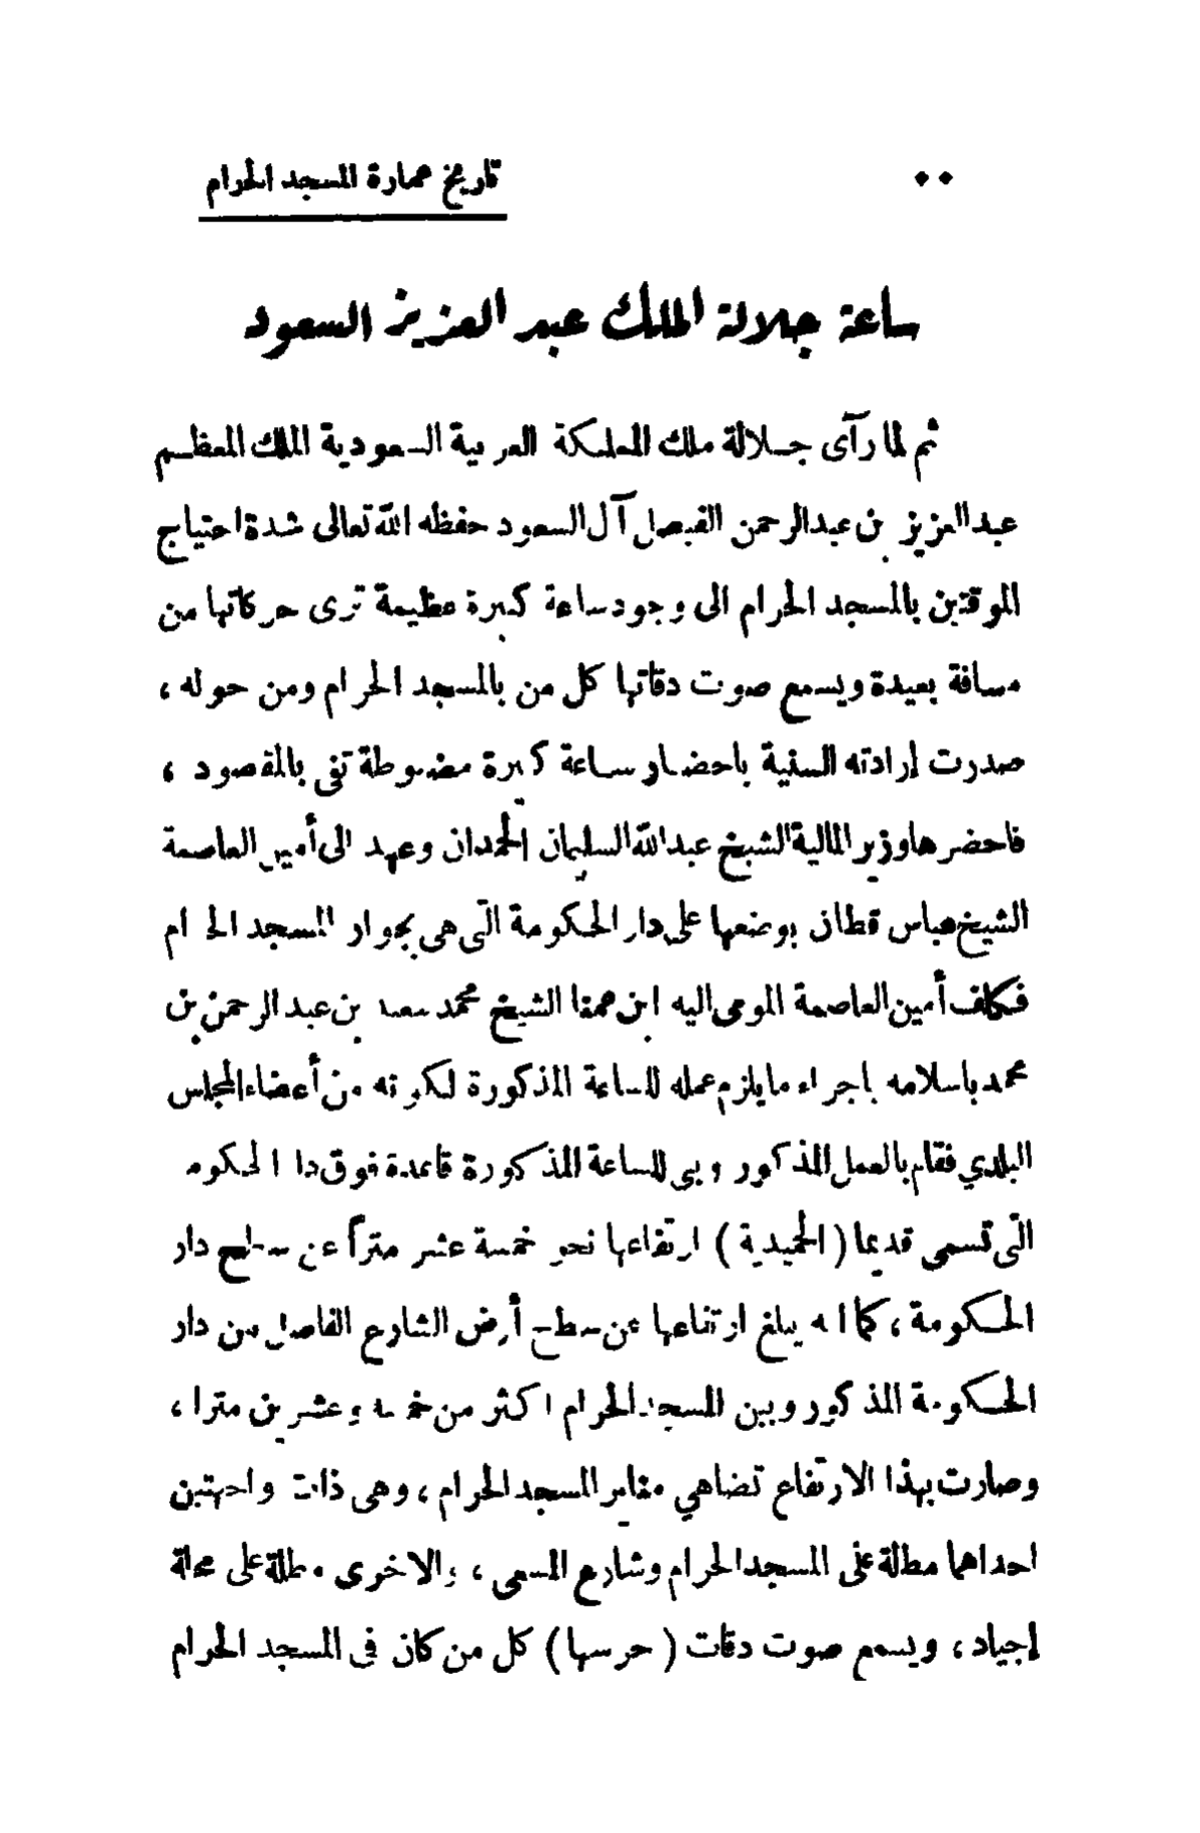 ٠٠ تاريخ عمارة المسجد الحرام
ساعة جلالة الملك عبد العزيز السعود
ثم لما رآى جلالة ملك المملكة العربية السعودية الملك المعظم
عبد العزيز بن عبد الرحمن الفيصل آل السعود حفظه الله تعالى شدة احتياج
الموقتين بالمسجد الحرام الى وجود ساعة كبيرة عظيمة ترى حركاتها من
مسافة بعيدة ويسمع صوت دقاتها كل من بالمسجد الحرام ومن حوله ،
صدرت إرادته السنية باحضار ساعة كبيرة مضبوطة تفى بالمقصود ،
فاحضرها وزير المالية الشيخ عبد الله السليمان الحمدان وعهد الى أمين العاصمة
الشيخ عباس قطان بوضعها على دار الحكومة التى هى بجوار المسجد الحرام
فكلف أمين العاصمة المومى اليه ابن عمنا الشيخ محمد سعيد بن عبد الرحمن بن
محمد باسلامه باجراء ما يلزم عمله للساعة المذكورة لكونه من أعضاء المجلس
البلدي فقام بالعمل المذكور وبنى للساعة المذكورة قاعدة فوق دار الحكومة
التى تسمى قديما ( الحميدية ) ارتفاعها نحو خمسة عشر متراً عن سطح دار
الحكومة ، كما انه يبلغ ارتفاعها عن سطح أرض الشارع الفاصل بين دار
الحكومة المذكور وبين المسجد الحرام اكثر من خمسة وعشرين مترا ،
وصارت بهذا الارتفاع تضاهي منابر المسجد الحرام ، وهى ذات واجهتين
احداهما مطلة على المسجد الحرام وشارع المسعى ، والاخرى مطلة على محلة
إجياد ، ويسمع صوت دقات ( جرسها ) كل من كان فى المسجد الحرام